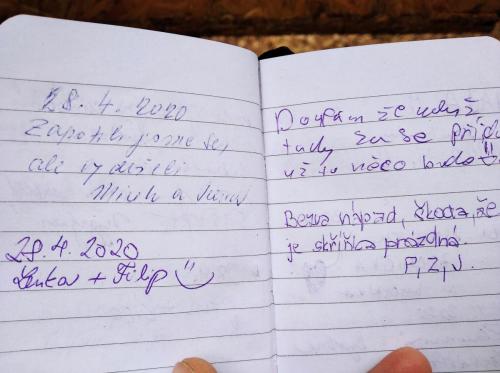 28. 4. 2020
Zapotili jsme se,
ale vydrželi
a
28.4. 2020
Lenka + Filip
Doufám že když
tudy za se přijde
už tu něco bude
Bezva nápad, škoda, že
je skříňka prázdná.
P, Z, J.